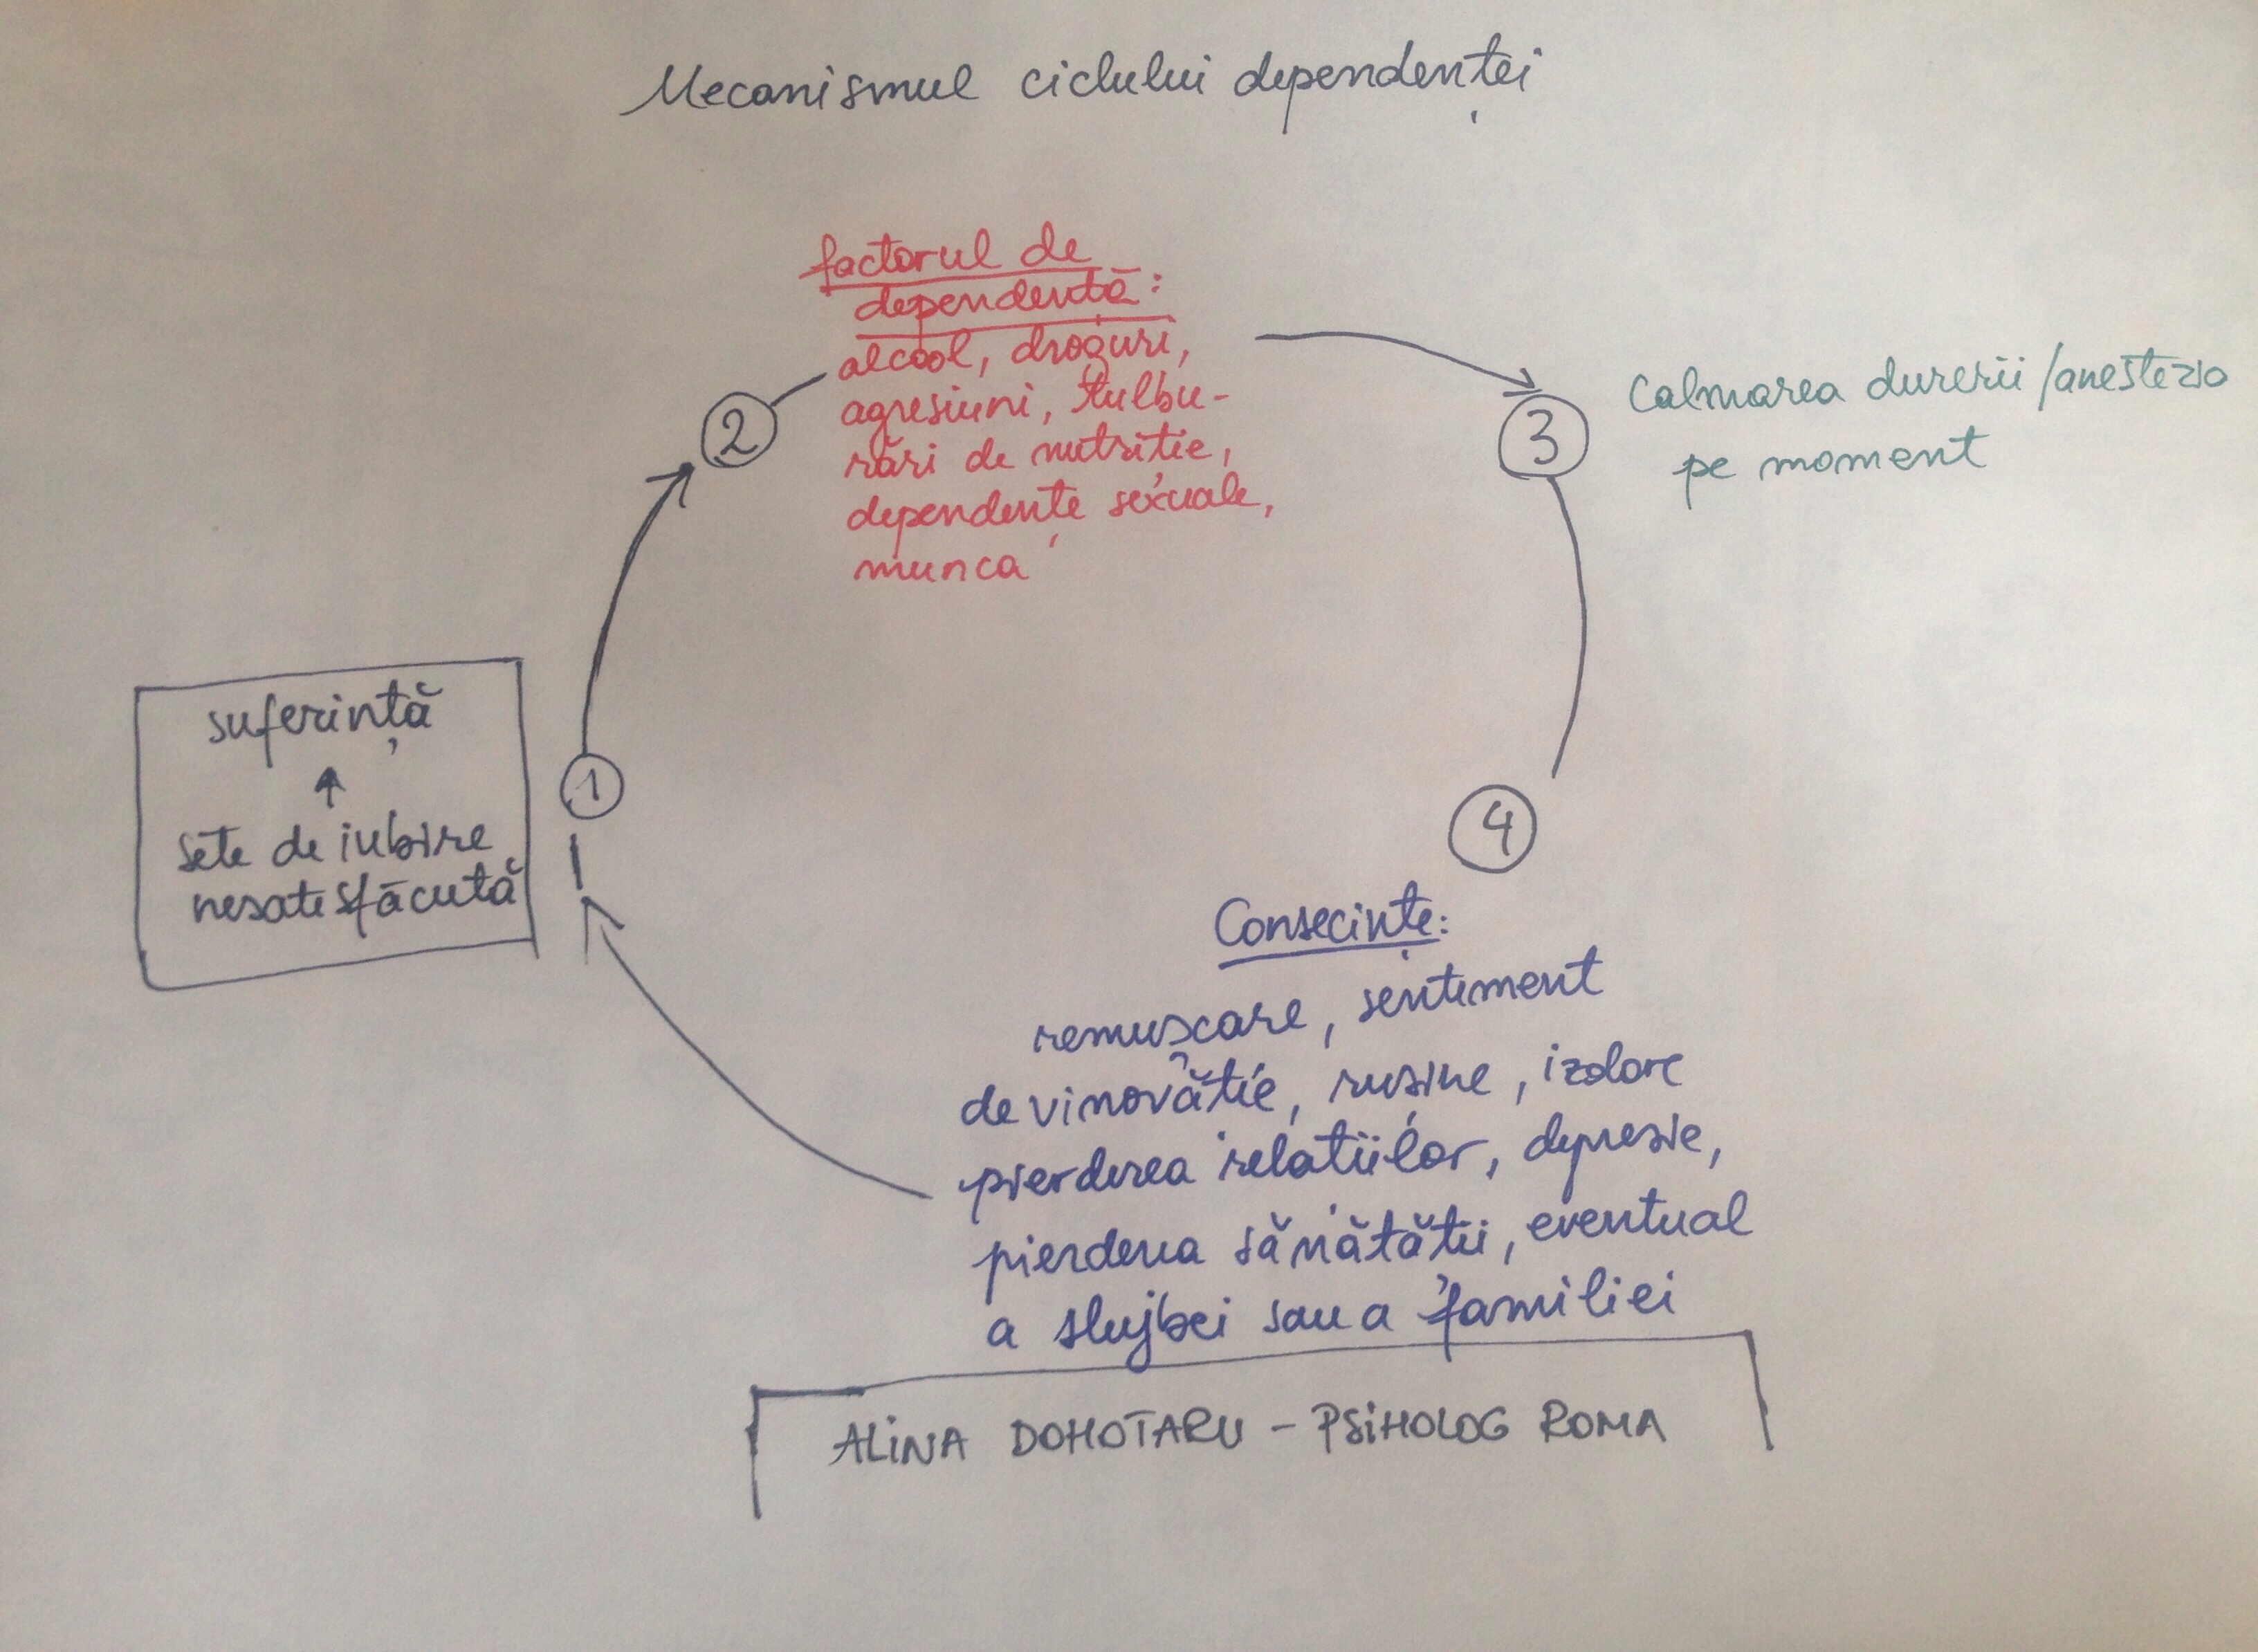 Mecanismul ciclului dependenței
factorul de
dependență:
alcool, droguri,
agresiuni, tulbu-
rări de nutriție,
dependențe sexuale,
munca
2
3
Calmarea durerii/anestezia
pe moment
suferință
↑
sete de iubire
nesatisfăcută
1
4
Consecințe:
remușcare, sentiment
de vinovăție, rușine, izolare
pierderea relațiilor, depresie,
pierderea sănătății, eventual
a slujbei sau a familiei
ALINA DOHOTARU - PSIHOLOG ROMA